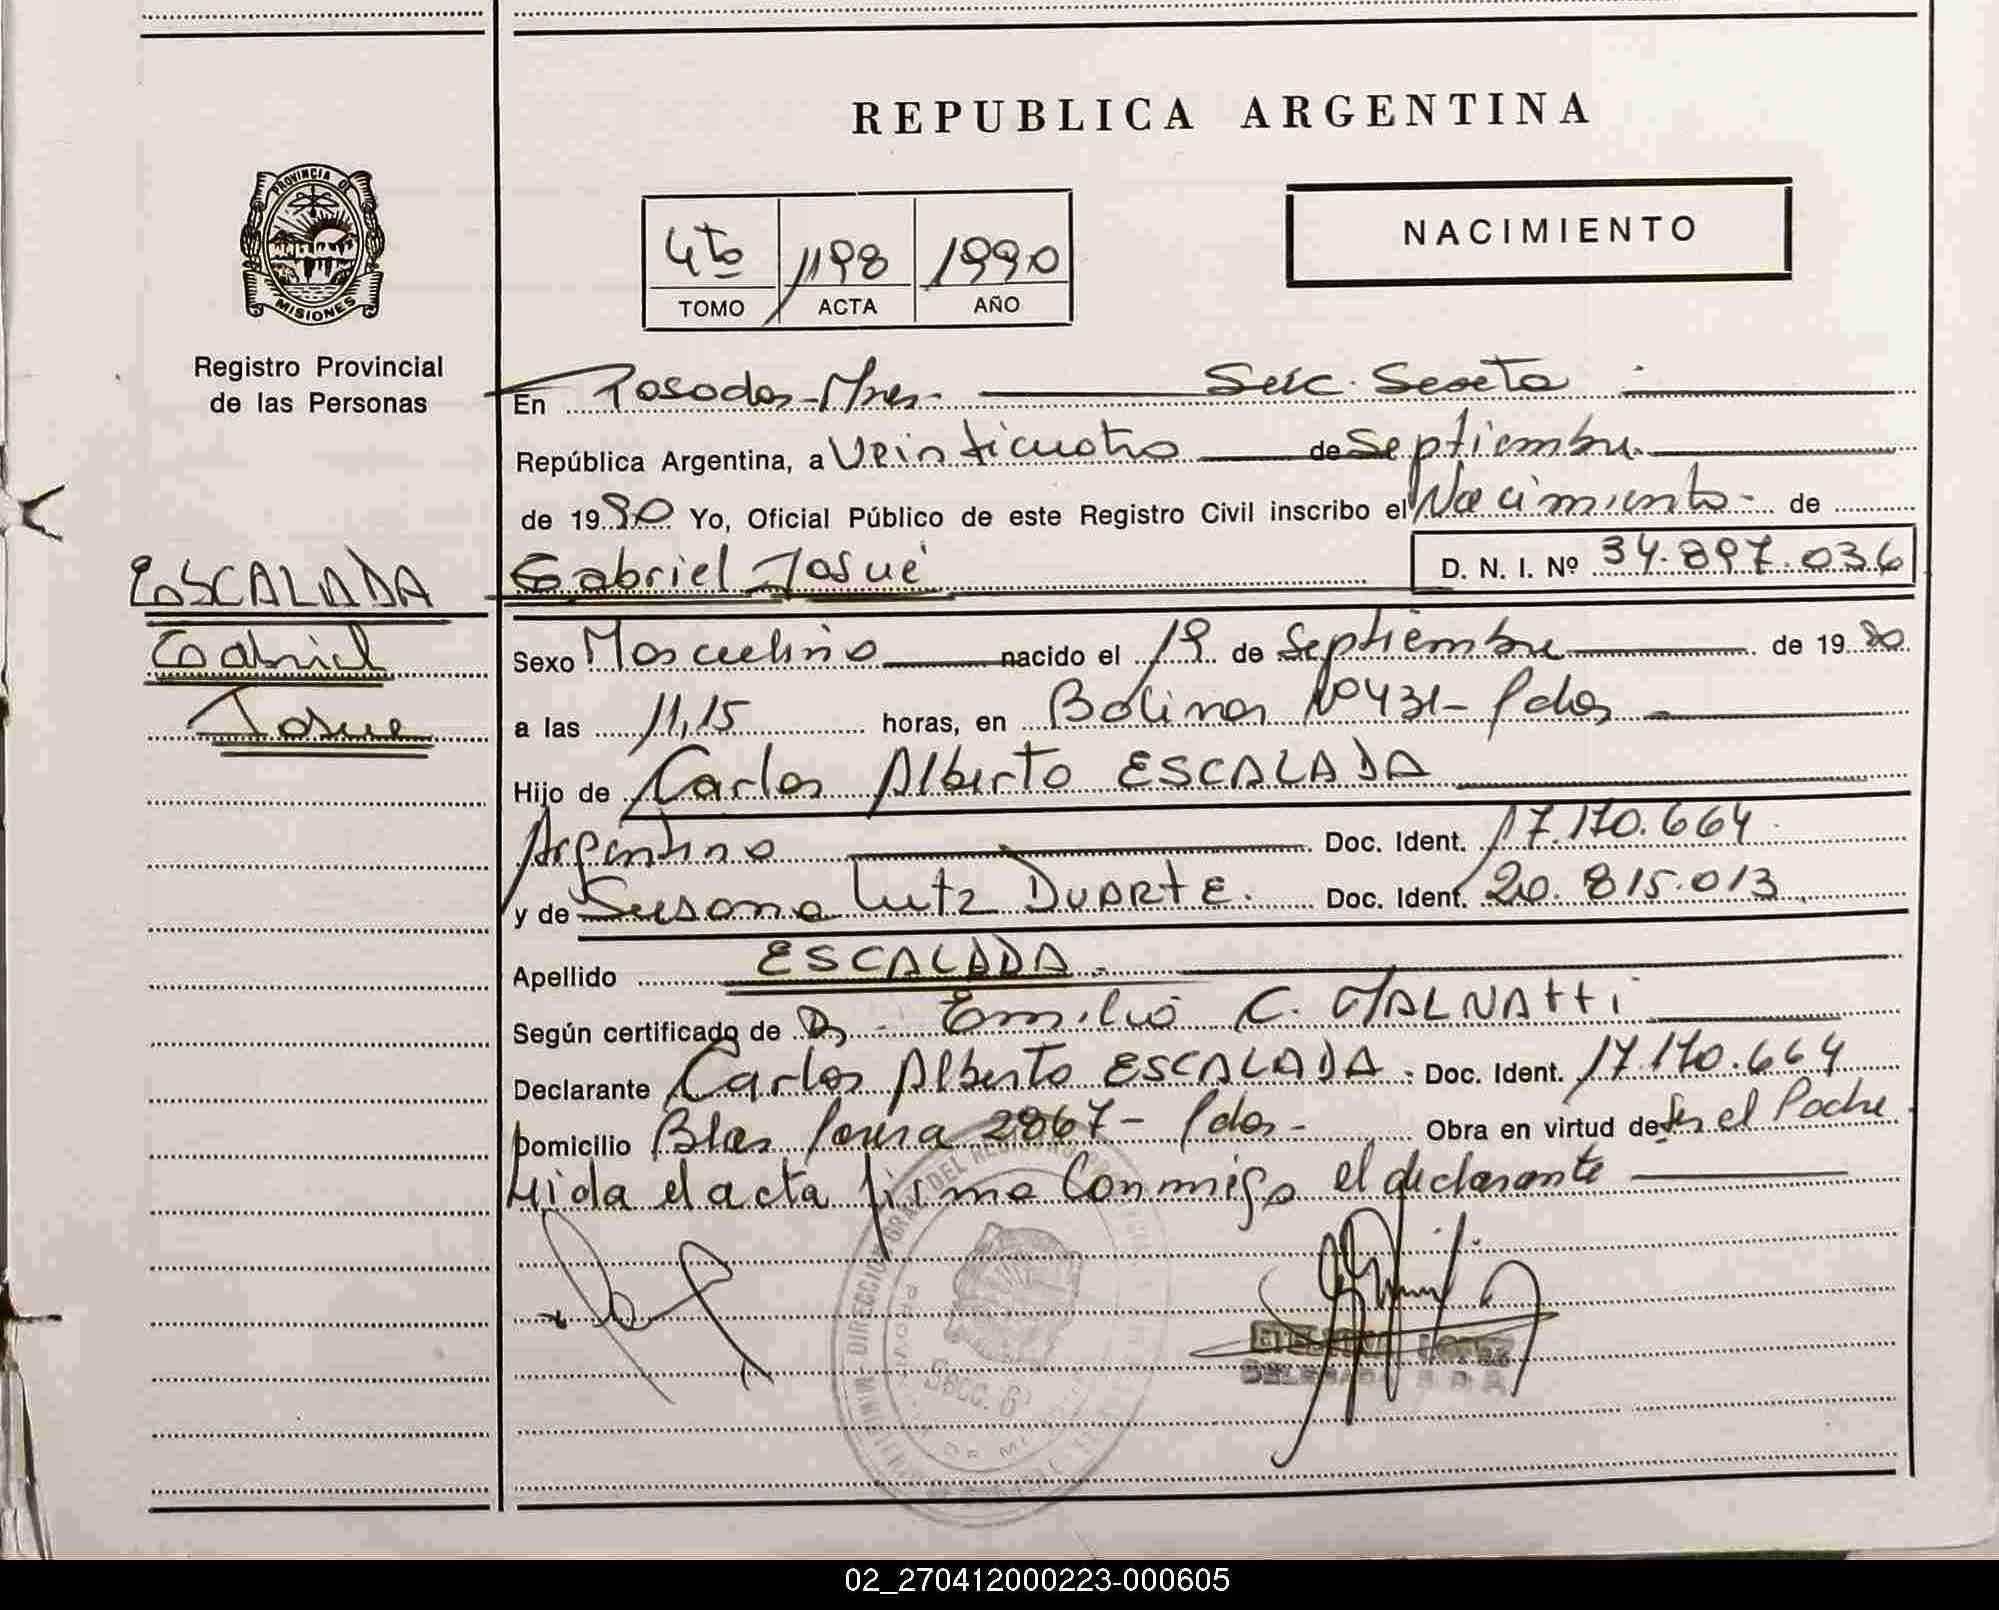 REPUBLICA ARGENTINA
PROVINCIA DE
MISIONES
Registro Provincial
de las Personas
4to 1198 1990
TOMO ACTA AÑO
NACIMIENTO
En Posadas-Mnes- Secc. Sexta
República Argentina, a Veinticuatro de Septiembre
de 1990 Yo, Oficial Público de este Registro Civil inscribo el Nacimiento- de
Gabriel Josué D. N. I. Nº 34.897.036
ESCALADA
Gabriel
Josue
Sexo Masculino nacido el 19 de Septiembre de 1990
a las 11,15 horas, en Nº 431- Pdas
Hijo de Carlos Alberto ESCALADA
Argentino Doc. Ident. 17.170.664
y de Susana Lutz DUARTE. Doc. Ident. 20.815.013
Apellido ESCALADA.-
Según certificado de Dr. Emilio C. MALNATTI
Declarante Carlos Alberto ESCALADA. Doc. Ident. 17.170.664
Domicilio Blas Parera 2867- Pdas- Obra en virtud de Ser el Padre
Leida el acta firma Conmigo el declarante
DIRECCION GRAL DEL REGISTRO
Secc. 6
02_270412000223-000605